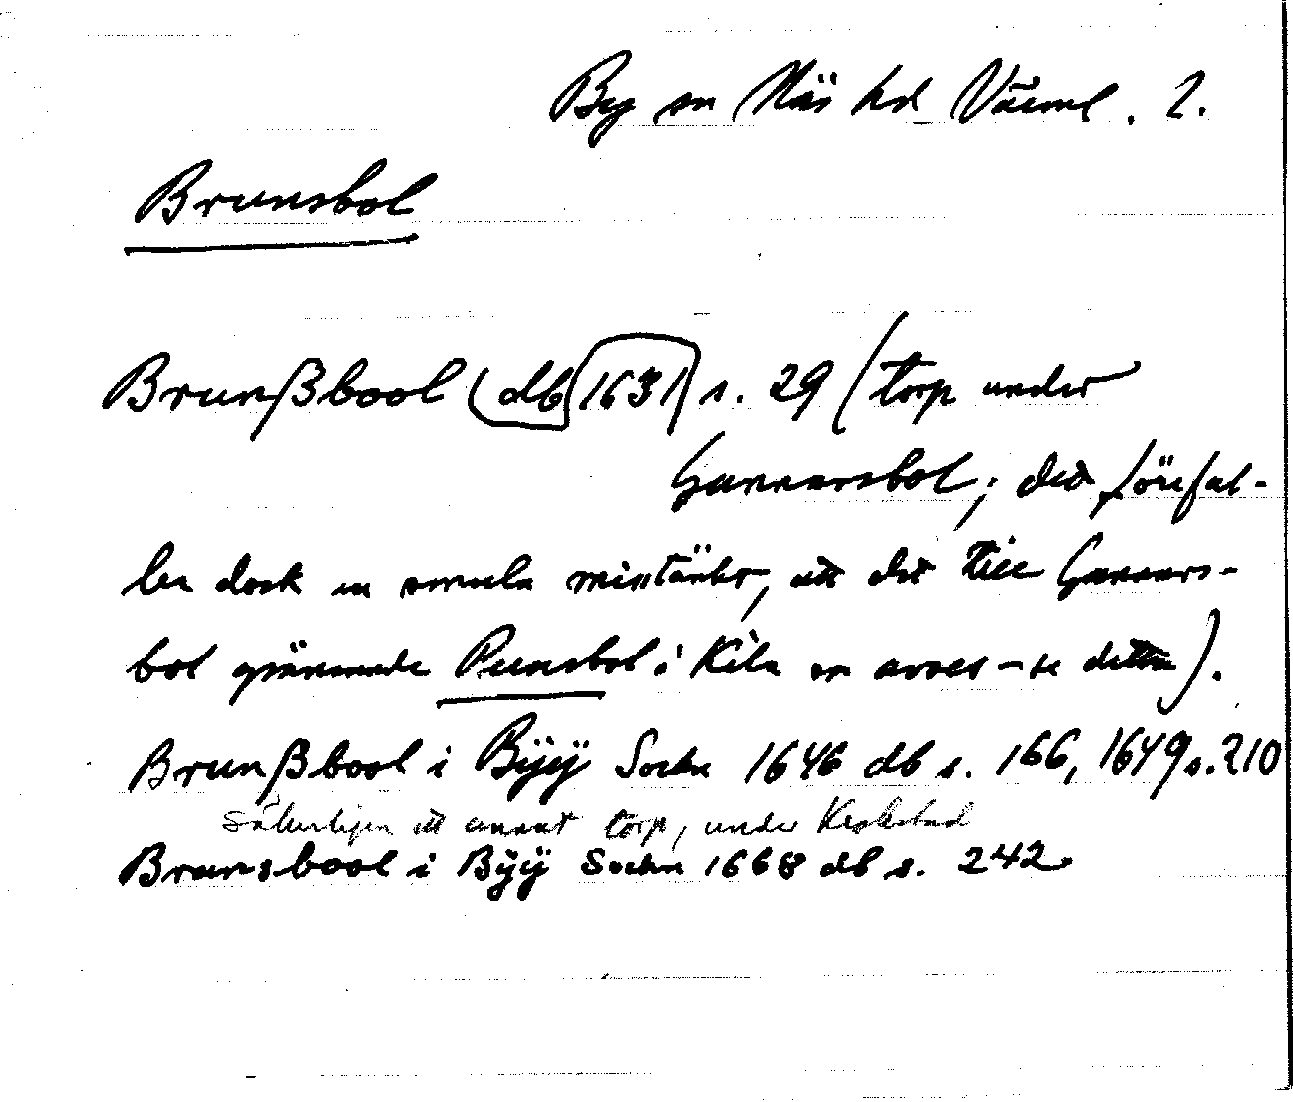 By sn Näs hd Värml. 2.
Brunsbol
Brunßbool (db 1631) s. 29 (torp under
Gunnarsbol; det förefal-
ler dock en smula misstänkt, att det till Gunnars-
bol gränsande Punsbol i Kila sn avses – se detta).
Brunßbool i Bÿÿ Sochn 1646 db s. 166, 1649 s. 210
Säkerligen ett annat torp, under
Brunsbool i Bÿÿ Sochn 1668 db s. 242.